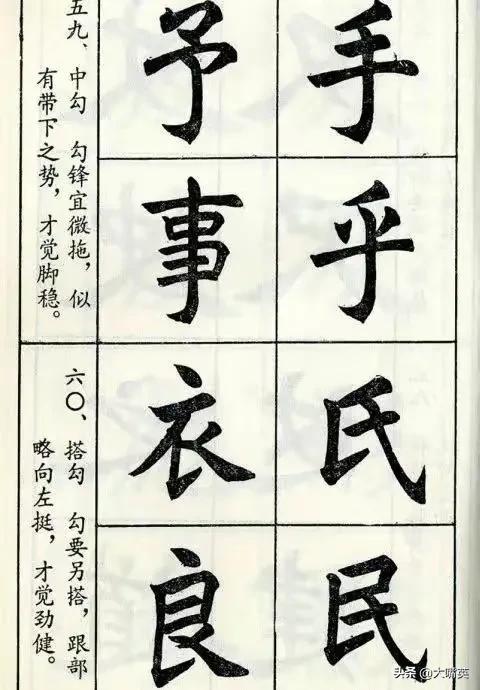 手乎氏民
予事衣良
五九、中勾 勾锋宜微拖，似
有带下之势，才觉脚稳。
六〇、搭勾 勾要另搭，跟部
略向左挺，才觉劲健。
头条 @大嘴英